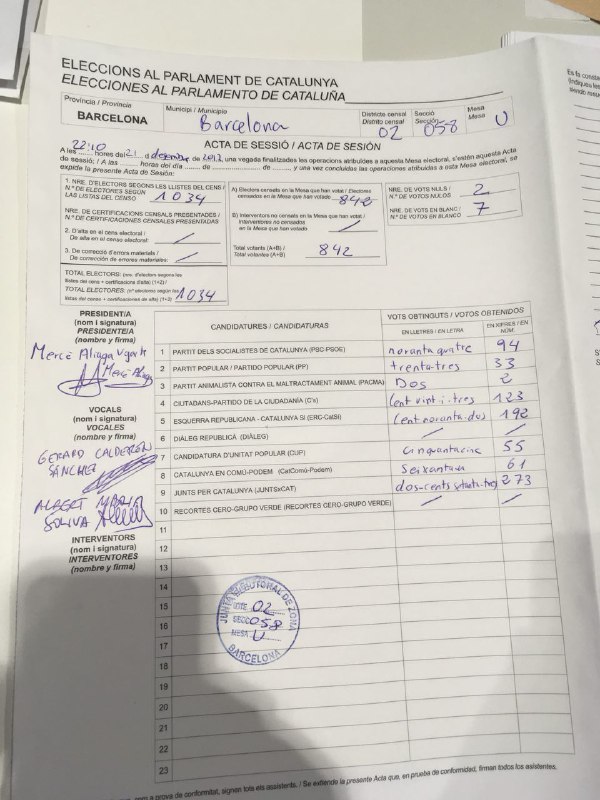 ELECCIONS AL PARLAMENT DE CATALUNYA
ELECCIONES AL PARLAMENTO DE CATALUÑA
Província / Provincia
BARCELONA
Municipi / Municipio
Barcelona
Districte censal
Distrito censal
02
Secció
Sección
058
Mesa
Mesa
U
ACTA DE SESSIÓ / ACTA DE SESIÓN
A les 22:10 hores del 21 d desembre de 2017, una vegada finalitzades les operacions atribuïdes a aquesta Mesa electoral, s'estén aquesta Acta
de sessió; / A las ...... horas del día ...... de ............ de ......, y una vez concluidas las operaciones atribuidas a esta Mesa electoral, se
expide la presente Acta de Sesión:
1. NRE. D'ELECTORS SEGONS LES LLISTES DEL CENS /
N.º DE ELECTORES SEGÚN
LAS LISTAS DEL CENSO
1034
NRE. DE CERTIFICACIONS CENSALS PRESENTADES /
N.º DE CERTIFICACIONES CENSALES PRESENTADAS
2. D'alta en el cens electoral /
De alta en el censo electoral:
3. De correcció d'errors materials /
De corrección de errores materiales:
TOTAL ELECTORS: (nre. d'electors segons les
llistes del cens + certificacions d'alta) (1+2) /
TOTAL ELECTORES: (n.º electores según las
listas del censo + certificaciones de alta) (1+2)
1034
A) Electors censats en la Mesa que han votat / Electores
censados en la Mesa que han votado
842
B) Interventors no censats en la Mesa que han votat /
Interventores no censados
en la Mesa que han votado
Total votants (A+B) /
Total votantes (A+B)
842
NRE. DE VOTS NULS /
N.º DE VOTOS NULOS
2
NRE. DE VOTS EN BLANC /
N.º DE VOTOS EN BLANCO
7
PRESIDENT/A
(nom i signatura)
PRESIDENTE/A
(nombre y firma)
Mercè Aliaga Ugarte
Mercè Aliaga
VOCALS
(nom i signatura)
VOCALES
(nombre y firma)
GERARD CALDERÓN
SÁNCHEZ
ALBERT
SOLIVA
INTERVENTORS
(nom i signatura)
INTERVENTORES
(nombre y firma)
CANDIDATURES / CANDIDATURAS
VOTS OBTINGUTS / VOTOS OBTENIDOS
EN LLETRES / EN LETRA
EN XIFRES / EN NÚM.
1 PARTIT DELS SOCIALISTES DE CATALUNYA (PSC-PSOE) noranta quatre 94
2 PARTIT POPULAR / PARTIDO POPULAR (PP) trenta-tres 33
3 PARTIT ANIMALISTA CONTRA EL MALTRACTAMENT ANIMAL (PACMA) Dos 2
4 CIUTADANS-PARTIDO DE LA CIUDADANÍA (C's) Cent vint-i-tres 123
5 ESQUERRA REPUBLICANA - CATALUNYA SÍ (ERC-CatSí) Cent noranta-dos 192
6 DIÀLEG REPUBLICÀ (DIÀLEG)
7 CANDIDATURA D'UNITAT POPULAR (CUP) Cinquantacinc 55
8 CATALUNYA EN COMÚ-PODEM (CatComú-Podem) Seixantaun 61
9 JUNTS PER CATALUNYA (JUNTSxCAT) dos-cents setanta-tres 273
10 RECORTES CERO-GRUPO VERDE (RECORTES CERO-GRUPO VERDE)
11
12
13
14
15
16
17
18
19
20
21
22
23
JUNTA ELECTORAL DE ZONA
DTE. 02
SECC. 058
MESA U
BARCELONA
com a prova de conformitat, signen tots els assistents. / Se extiende la presente Acta que, en prueba de conformidad, firman todos los asistentes.
Es fa constar
(Indiqueu les